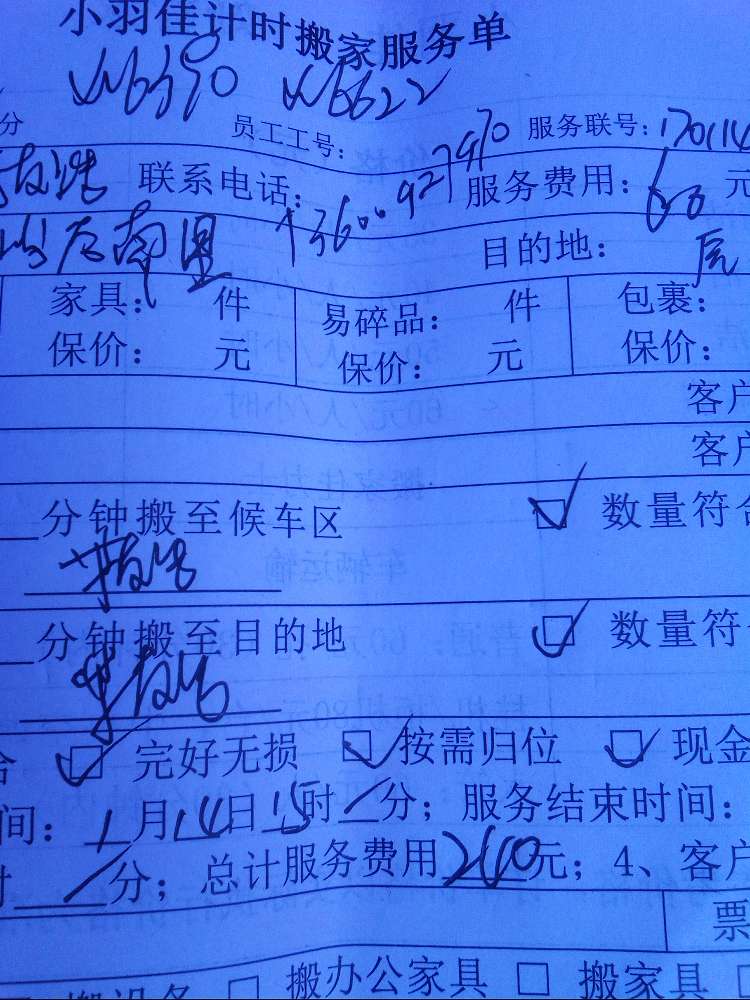 小羽佳计时搬家服务单
分 员工工号： 服务联号：170114
联系电话：13600927970 服务费用：60元
后南里 目的地：
家具： 件 易碎品： 件 包裹：
保价： 元 保价： 元 保价：
客户
客户
分钟搬至候车区 数量符合
分钟搬至目的地 数量符
合 完好无损 按需归位 现金
间：1月14日15时/分；服务结束时间：
时/分；总计服务费用240元；4、客户
票
搬设备 搬办公家具 搬家具